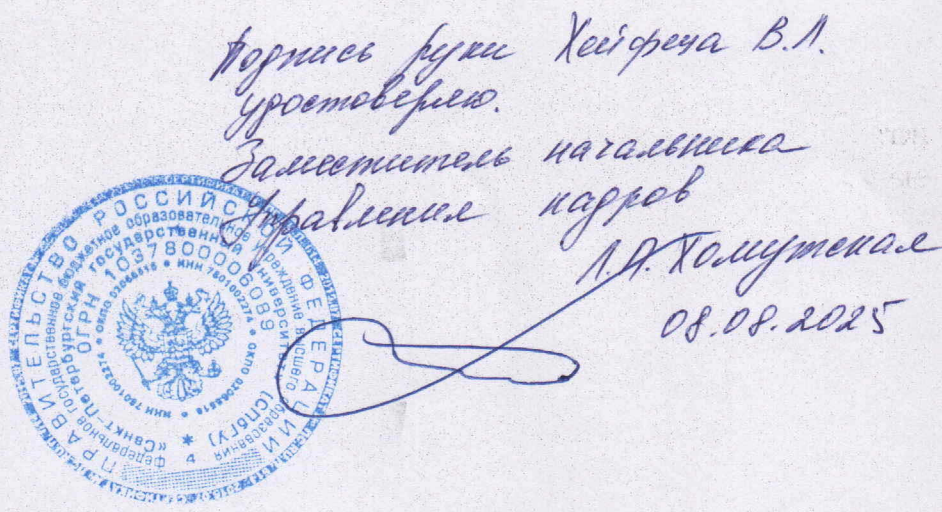 Подпись руки Хейфеца В.Л.
удостоверяю.
Заместитель начальника
Управления кадров
Л.А. Хомутская
08.08.2025
ПРАВИТЕЛЬСТВО РОССИЙСКОЙ ФЕДЕРАЦИИ
федеральное государственное бюджетное образовательное учреждение высшего образования
«Санкт-Петербургский государственный университет» (СПбГУ)
ОГРН 1037800006089
* 4